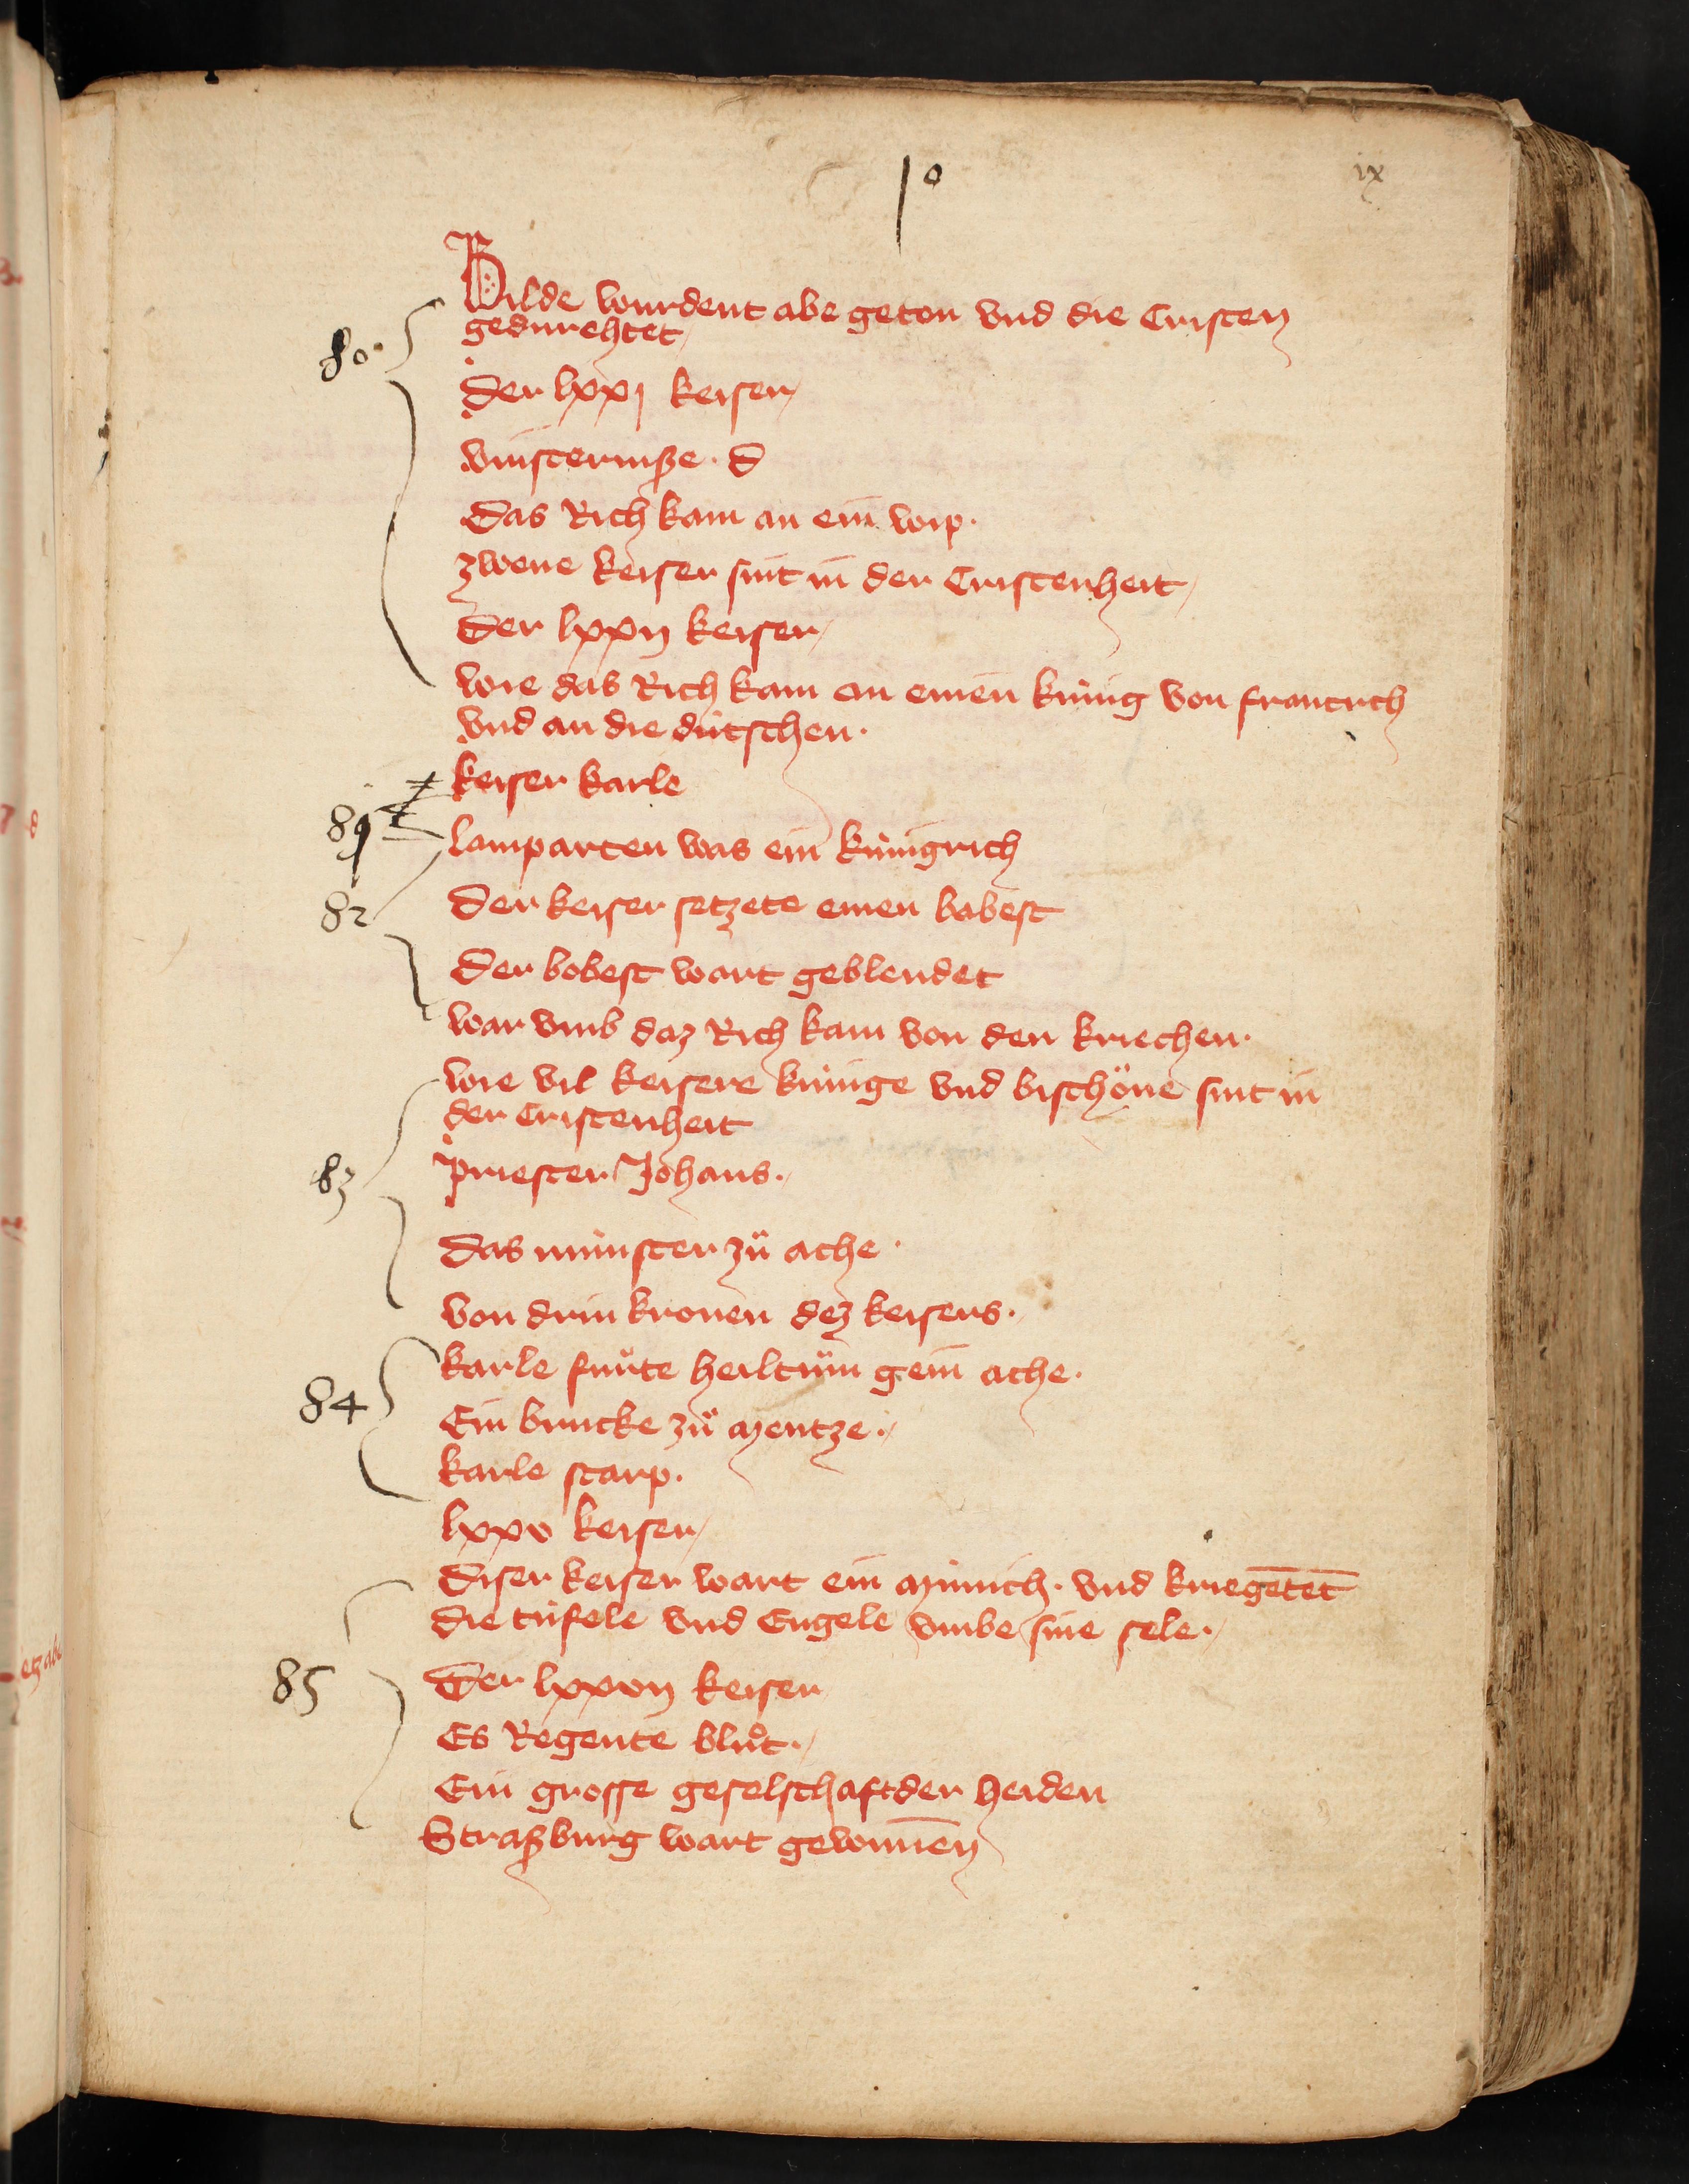 10
ix
Bilde wurdent abe geton vnd die Cristen
80. gedurehtet
Der lxxj keiser
vinsternisze. d
Das Rich kam an ein wip.
zwene keiser sint in der Cristenheit
Der lxxij keiser
wie das Rich kam an einen kúnig von franckrich
vnd an die dútschen.
keiser karle
81 lamparten was ein kúnigrich
82 Der keiser setzete einen babest
Der bobest wart geblendet
war vmb daz Rich kam von den kriechen.
wie vil keisere kúnige vnd bischöue sint in
der Cristenheit
83 priester Johans.
Das múnster zů ache.
von drin kronen dez keisers.
karle fůrte heiltům gein ache.
84 Ein brucke zů mentze.
karle starp.
lxxv keiser
Diser keiser wart ein múnich. vnd kriegetēt
die túfele vnd Engele vmbe sine sele.
85 Der lxxvij keiser
Es Regente blůt.
Ein grosse geselschaft der heiden
Straszburg wart gewunnen